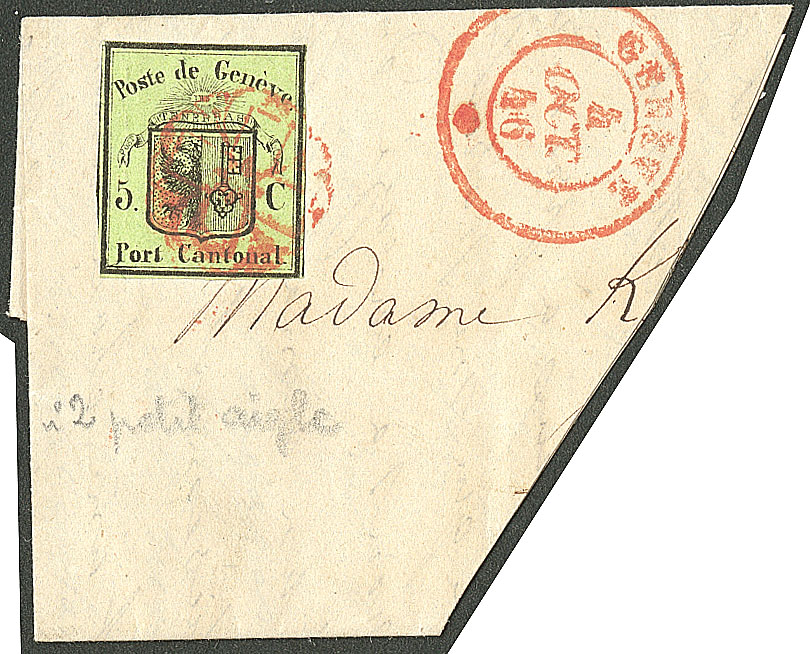 Poste de Genève.
TENEBRAS
5. C
Port Cantonal.
GENEVE
4
OCT
46
Madame K
n° 2 petit aigle